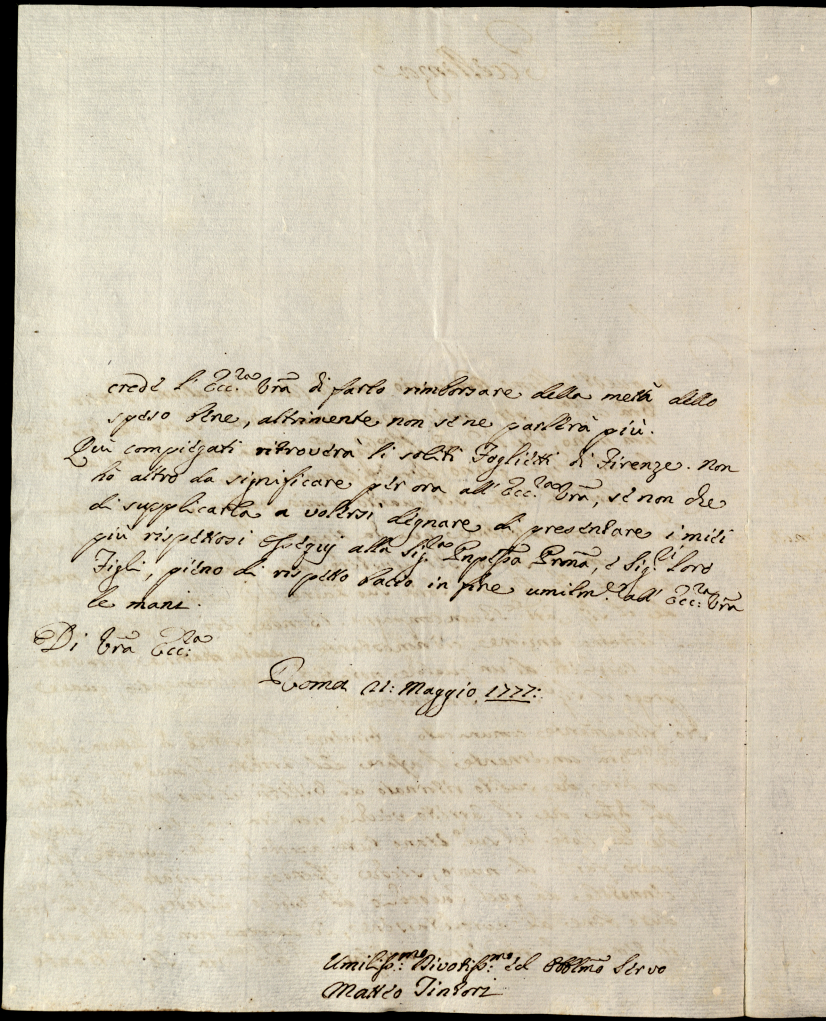 crede l'Ecc:za Vrã di farlo rimborsare della metà dello
speso bene, altrimente non se ne parlerà più.
Quì compiegati ritroverà li soliti Foglietti di Firenze. Non
hò altro da significare per ora all'Ecc:za Vrã, se non che
di supplicarla a volersi degnare di presentare i miei
più rispettosi Ossequj alla Sig:ra Pnpessa Pronã, e Sig:li Loro
Figli, pieno di rispetto bacio in fine umilm:e all'Ecc:za Vrã
le mani.
Di Vrã Ecc:za
Roma 21: Maggio 1777:
Umiliss:mo Divotiss:mo ed Obblmõ Servo
Matteo Tintori